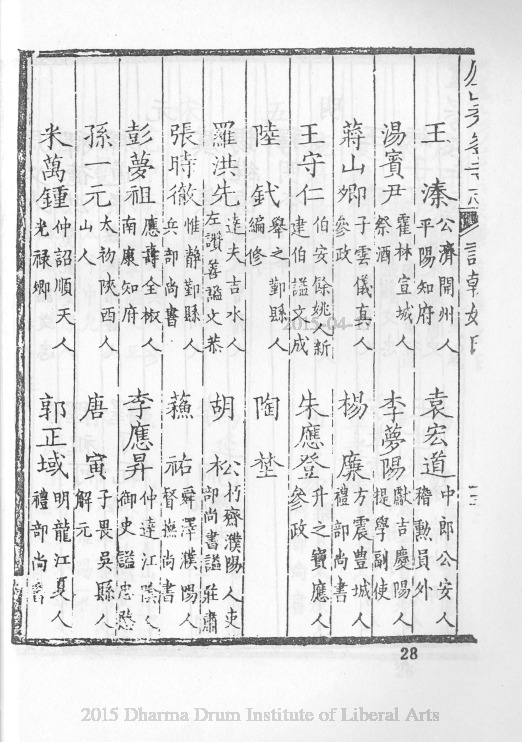 王溱 公濟開州人平陽知府
袁宏道 中郎公安人稽勳員外
湯賓尹 霍林宣城人祭酒
李夢陽 獻吉慶陽人提學副使
蔣山卿 子雲儀真人參政
楊廉 方震豐城人禮部尚書
王守仁 伯安餘姚人新建伯謚文成
朱應登 升之寶應人參政
陸釴 舉之鄞縣人編修
陶埜
羅洪先 達夫吉水人左讚善謚文恭
胡松 朽齋濮陽人吏部尚書謚莊肅
張時徹 惟静鄞縣人兵部尚書
蘓祐 舜澤濮陽人督撫尚書
彭夢祖 應壽全椒人南康知府
李應昇 仲達江陰人御史謚忠愍
孫一元 太初陝西人山人
唐寅 子畏吳縣人解元
米萬鍾 仲詔順天人光禄卿
郭正域 明龍江夏人禮部尚書
28
2015-04-17
2015 Dharma Drum Institute of Liberal Arts